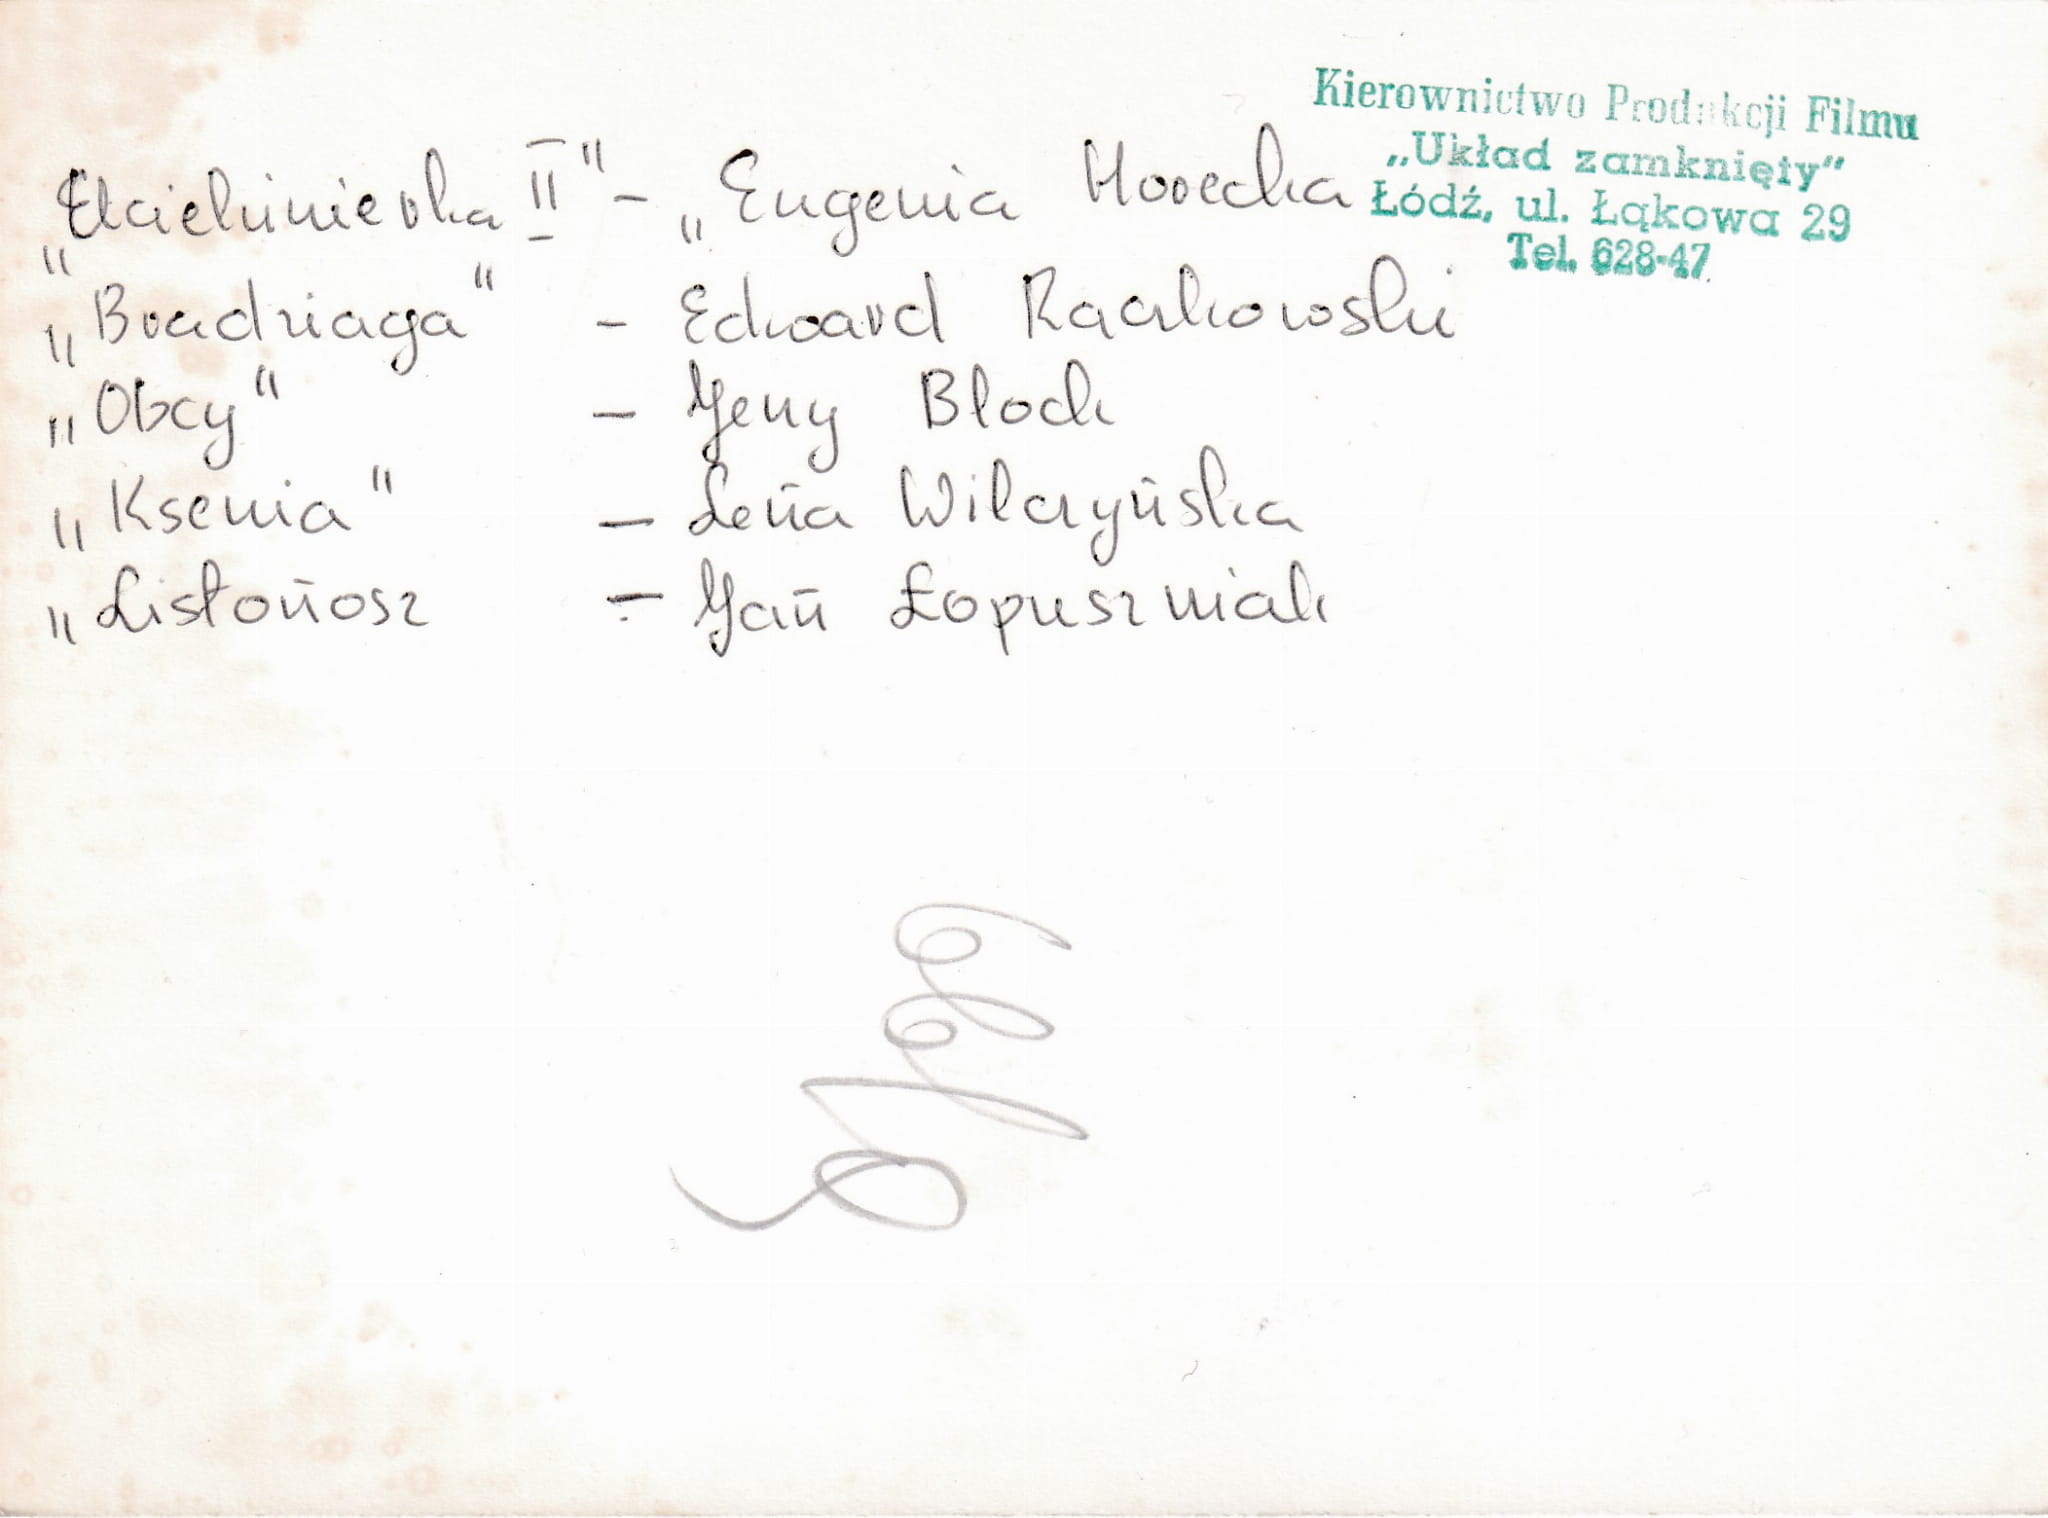 Kierownictwo Produkcji Filmu
„Układ zamknięty”
Łódź, ul. Łąkowa 29
Tel. 628-47
II” – „Eugenia Horecka
„Bradziaga” – Edward Raczkowski
„Obcy” – Jerzy Bloch
„Ksenia” – Lena Wilczyńska
„Listonosz – Jan Łopuszniak